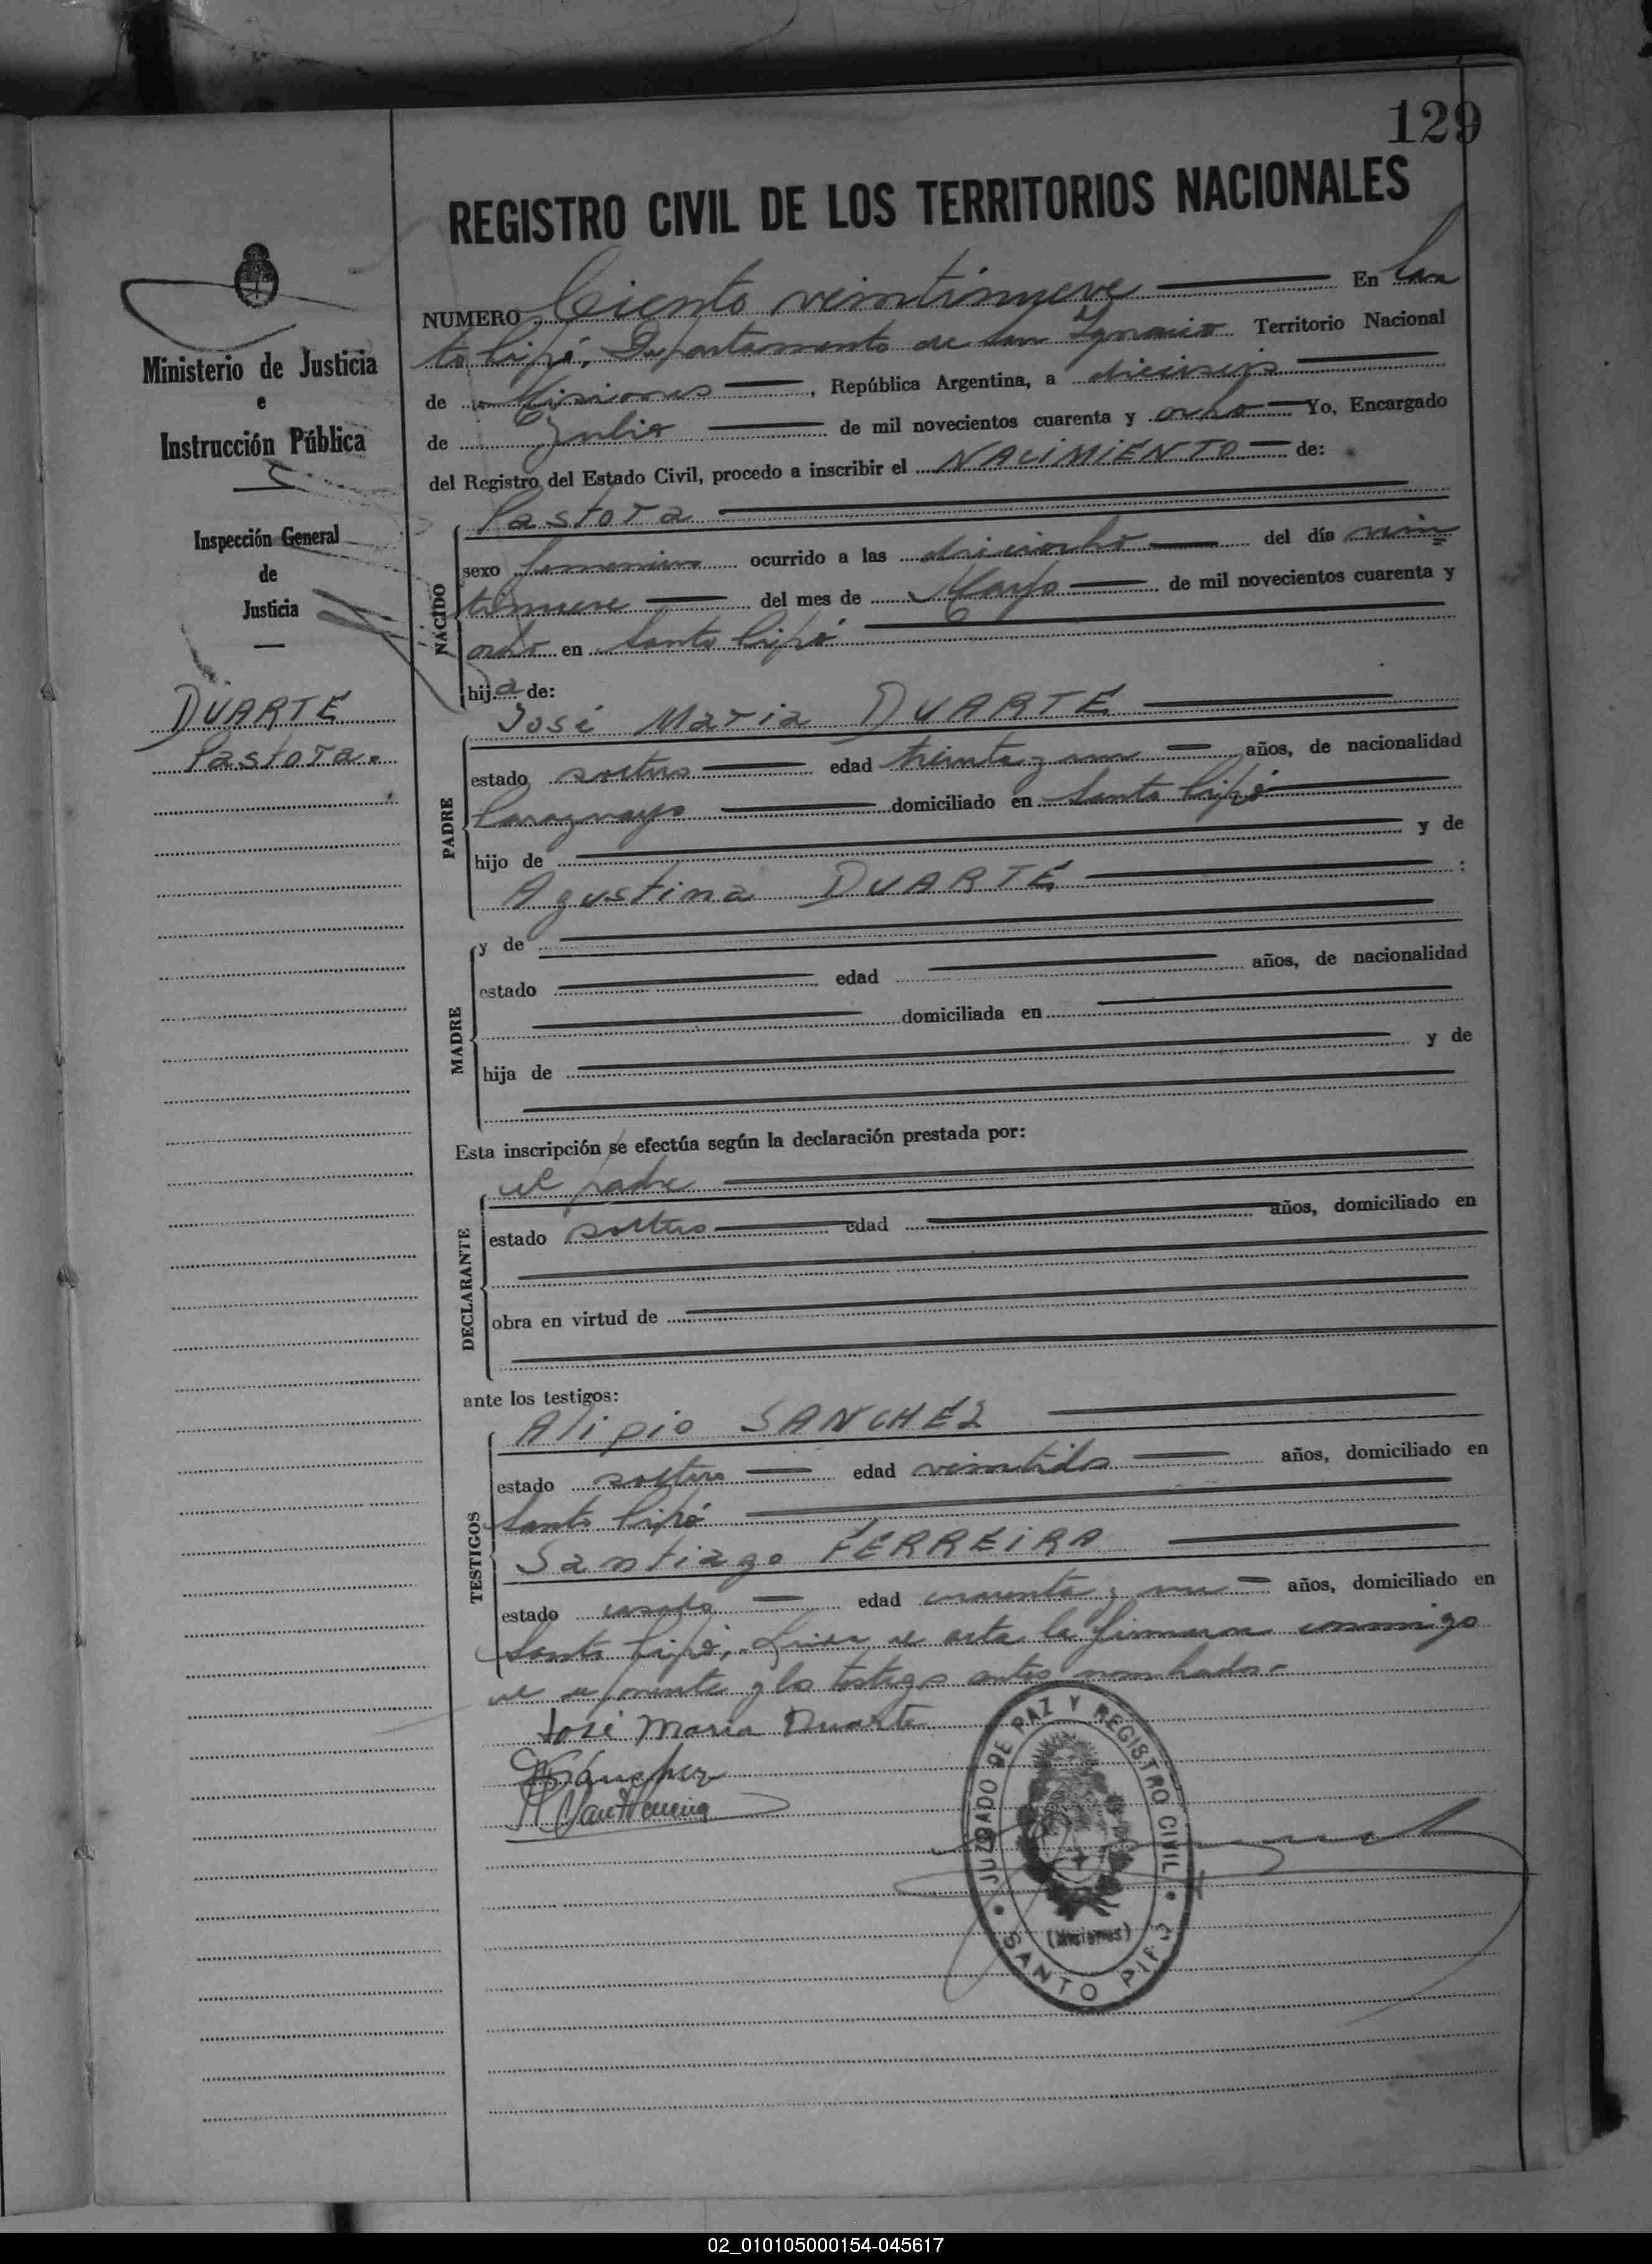 129
REGISTRO CIVIL DE LOS TERRITORIOS NACIONALES
NUMERO Ciento veintinueve En San
to Pipó, Departamento de San Ignacio Territorio Nacional
de Misiones, República Argentina, a dieciseis
de Julio de mil novecientos cuarenta y ocho Yo, Encargado
del Registro del Estado Civil, procedo a inscribir el NACIMIENTO de:
Ministerio de Justicia
e
Instrucción Pública
Inspección General
de
Justicia
DUARTE
Pastora.
NACIDO
Pastora
sexo femenino ocurrido a las dieciocho del día vein=
tinueve del mes de Mayo de mil novecientos cuarenta y
ocho en Santo Pipó
hija de:
PADRE
José Maria DUARTE
estado soltero edad treinta y un años, de nacionalidad
Paraguayo domiciliado en Santo Pipó
hijo de y de
Agustina DUARTE :
MADRE
y de
estado edad años, de nacionalidad
domiciliada en
hija de y de
Esta inscripción se efectúa según la declaración prestada por:
DECLARANTE
el padre
estado soltero edad años, domiciliado en
obra en virtud de
ante los testigos:
TESTIGOS
Alipio SANCHEZ
estado soltero edad veintidos años, domiciliado en
Santo Pipó
Santiago FERREIRA
estado casado edad cuarenta y un años, domiciliado en
Santo Pipó. Leida el acta la firmaron conmigo
el exponente y los testigos antes nombrados-
José Maria Duarte
Sánchez
JUZGADO DE PAZ Y REGISTRO CIVIL
(Misiones)
SANTO PIPÓ
02_010105000154-045617